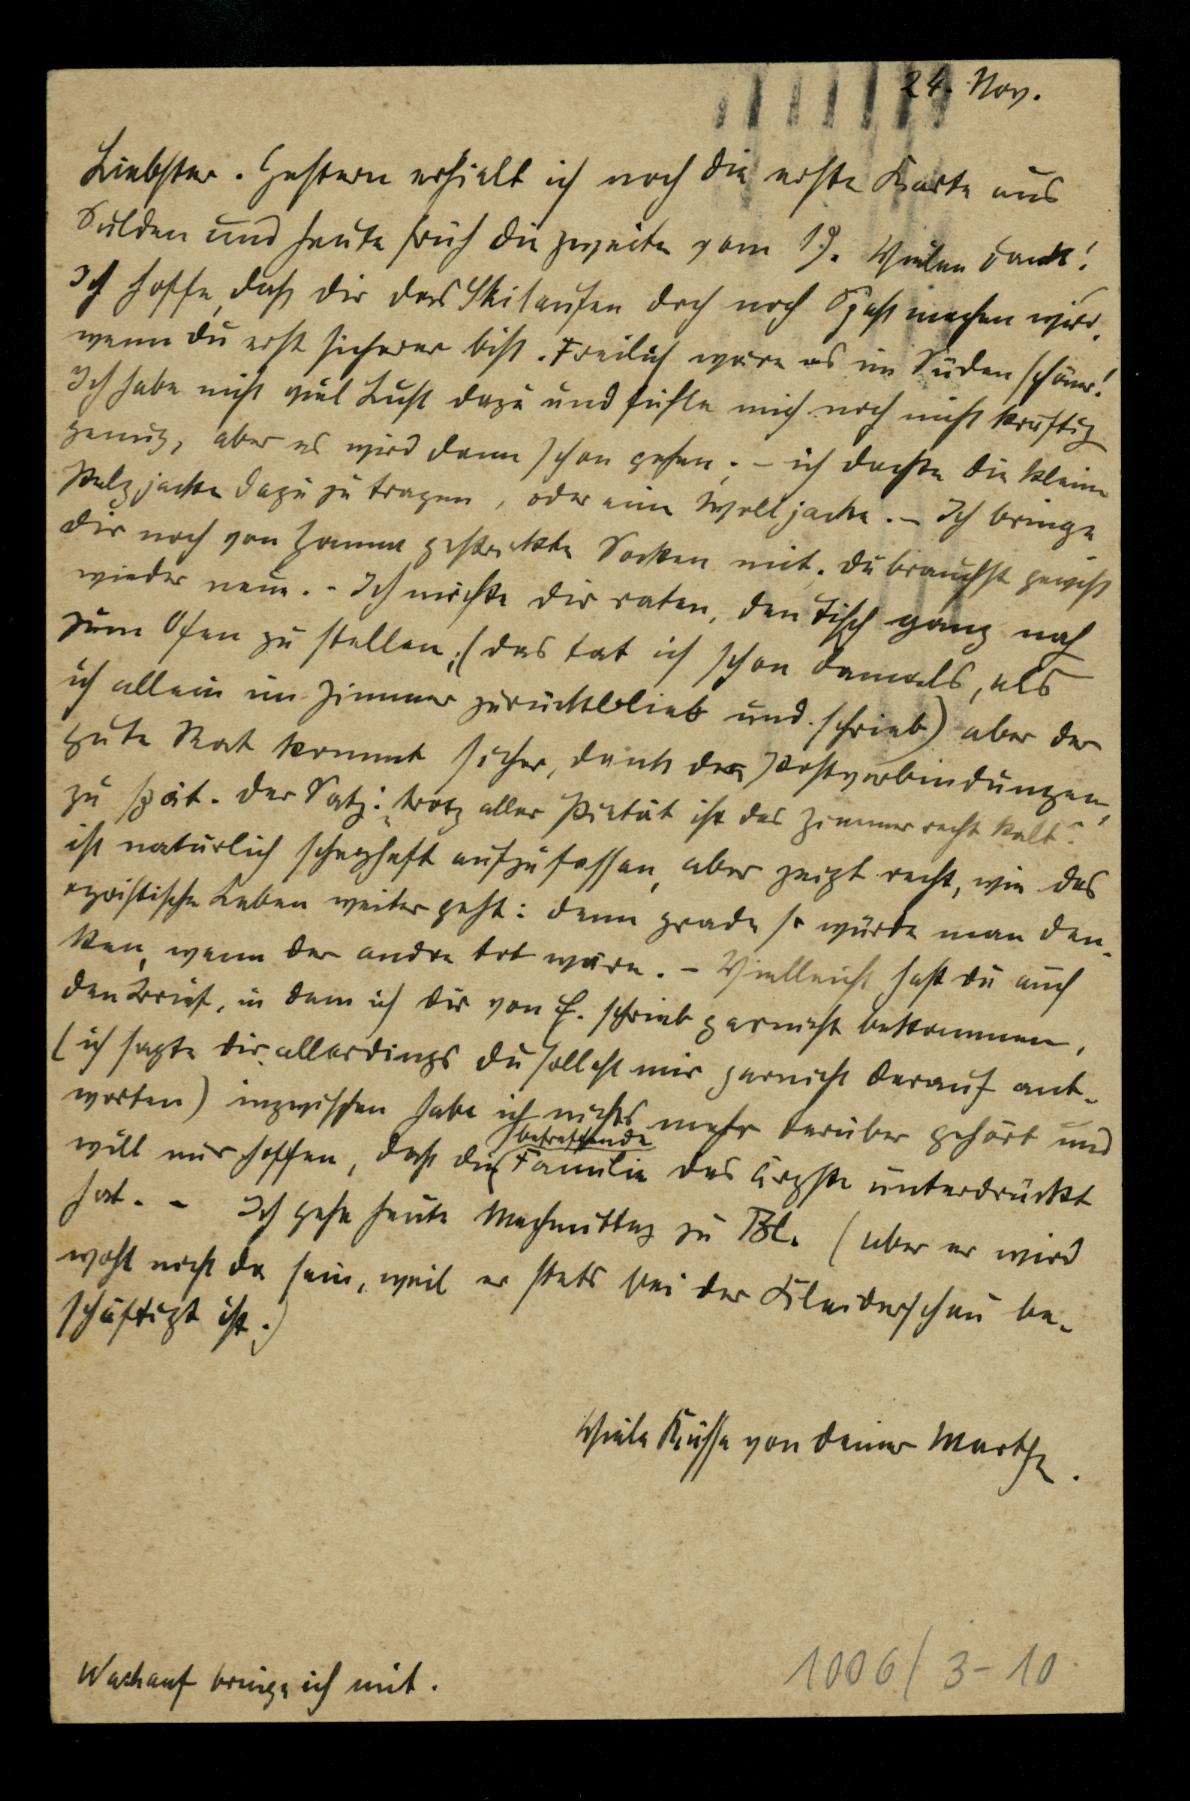 24. Nov.
Liebster. Gestern erhielt ich noch die erste Karte aus
Sulden und heute früh die zweite vom 19. Vielen Dank!
Ich hoffe, dass dir das Skilaufen doch noch Spass machen wird,
wenn du erst sicherer bist. Freilich wäre es im Süden schöner!
Ich habe nicht viel Lust dazu und fühle mich noch nicht kräftig
genug, aber es wird dann schon gehen. – ich dachte die kleine
Pelzjacke dazu zu tragen, oder eine Wolljacke. – Ich bringe
dir noch von Hanna gestrickte Socken mit, du brauchst gewiss
wieder neue. – Ich möchte dir raten, den Tisch ganz nah
zum Ofen zu stellen; (das tat ich schon damals, als
ich allein im Zimmer zurückblieb und schrieb) aber der
gute Rat kommt sicher, dank der Postverbindungen,
zu spät. Der Satz: „trotz aller Pietät ist das Zimmer recht kalt“
ist natürlich scherzhaft aufzufassen, aber zeigt recht, wie das
egoistische Leben weiter geht: denn grade so würde man den-
ken, wenn der andre tot wäre. – Vielleicht hast du auch
den Brief, in dem ich dir von E. schrieb garnicht bekommen,
(ich sagte dir allerdings du sollest mir garnicht darauf ant-
worten) inzwischen habe ich nichts mehr darüber gehört und
will nur hoffen, dass die betreffende Familie das Ärgste unterdrückt
hat. – Ich gehe heute Nachmittag zu Bl. (aber er wird
wohl nicht da sein, weil er stets bei der Kleiderschau be-
schäftigt ist.)
Viele Küsse von deiner Marthe.
Wachauf bringe ich mit.
1006/3-10